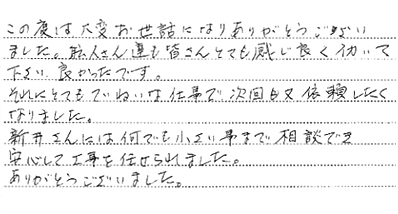 この度は大変お世話になりありがとうござい
ました。職人さん達も皆さんとても感じ良く働いて
下さい良かったです。
それにとてもていねいな仕事で次回も又依頼したく
なりました。
新井さんには何でも小さい事まで相談でき
安心して工事を任せられました。
ありがとうございました。